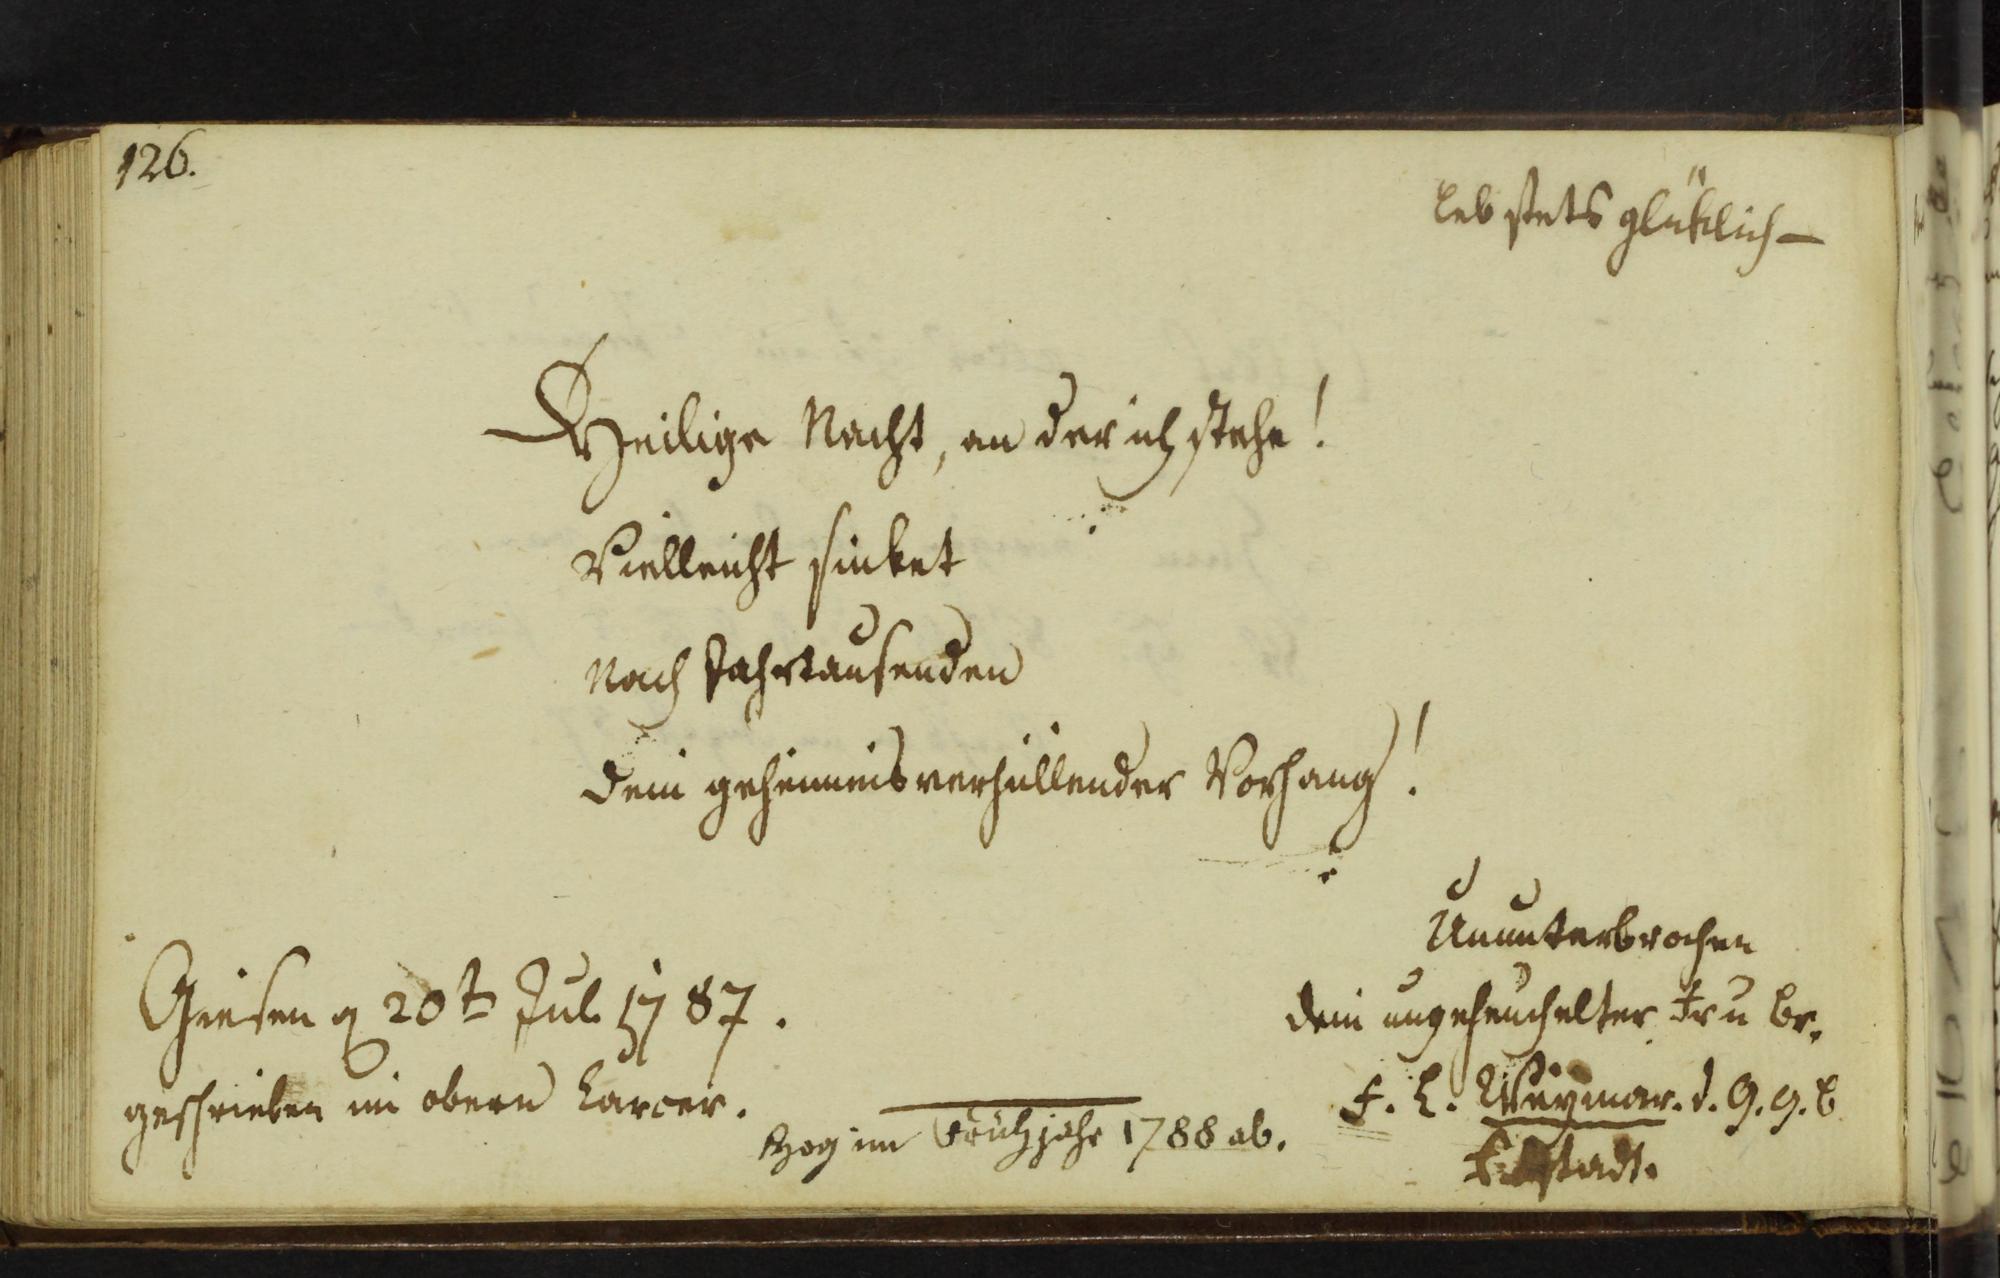 126.
leb stets glüklich —
Heilige Nacht, an der ich stehe!
Vielleicht sinket
Nach Jahrtausenden
dein geheimnisverhüllender Vorhang!
Ununterbrochen
dein ungeheuchelter Fr u Br.
F. L. Weymar. d. G. g. b
stadt.
Giesen d 20t Jul. 1787.
geschrieben im obern Carcer.
zog im Frühjahr 1788 ab.